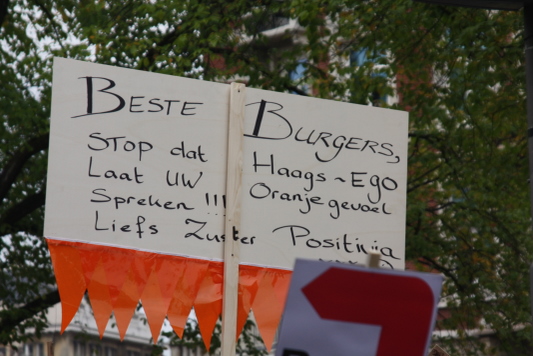 BESTE BURGERS,
STOP dat Haags ~ EGO
Laat UW Oranjegevoel
Spreken !!!
Liefs Zuster Positivia